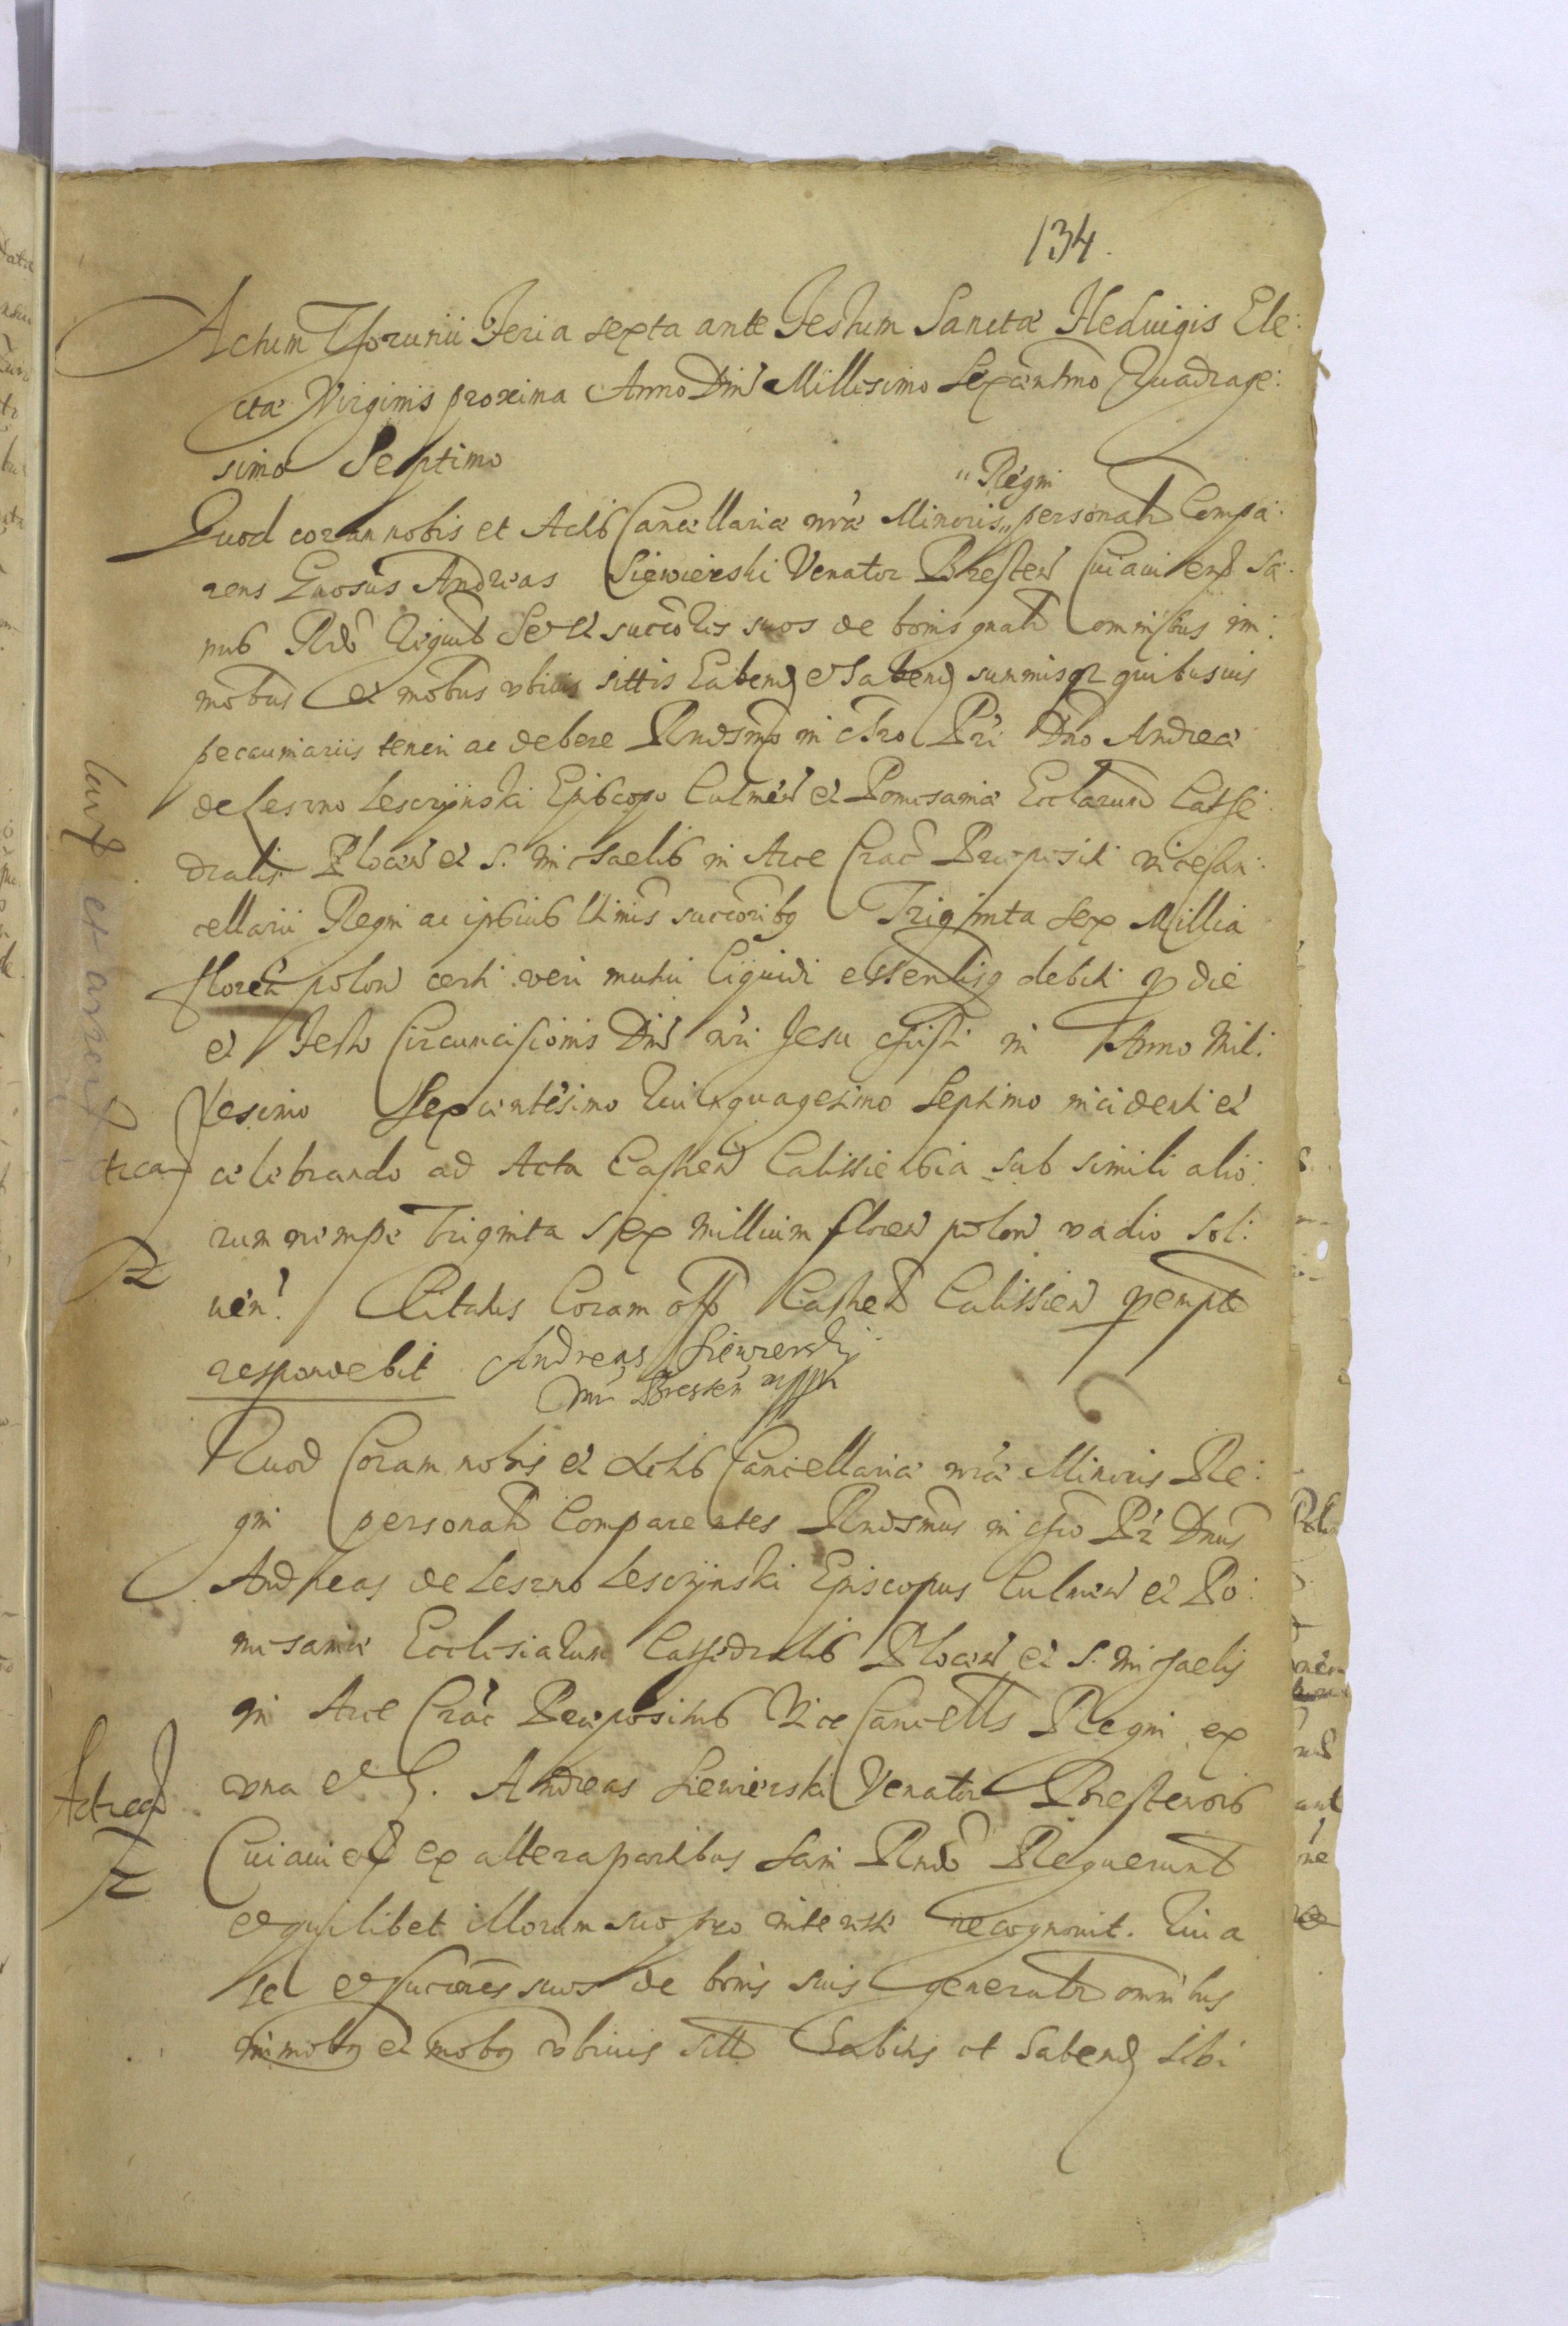 134.
Actum Thorunii Feria sexta ante Festum Sanctæ Heduigis Ele:
ctæ Virginis proxima Anno Dni Millesimo Sexcentmo Quadrage:
simo Septimo
Regni
Quod coram nobis et Actis Cancellariæ nræ Minoris personalr Compa:
rens Gnosus Andreas Siewierski Venator Bresten Cuiauien sa:
nus Rndo Se et succo suos de bonis gnalr omnibus im:
mobus et mobus vbiuis sittis habend summisqz quibusuis
pecuniariis teneri ac debere Rndsmo in Chro Pri Dno Andreæ
de Leszno Lesczÿnski Episcopo Culmen et Pomesaniæ Ecclarum Cathe:
dralis Plocen et S. Michaelis in Arce Crac Præpositi vicecan:
cellarii Regni ac ipsius ltimis succoribq Triginta Sex Millia
floren polon certi veri mutui liquidi essentlisq debiti p die
et Festo Circumcisionis Dni nri Jesu Christi in Anno Mil:
lesimo Sexcentesimo Quinquagesimo Septimo incidenti et
celebrando ad Acta Castren Calissiensia sub simili alio:
rum nempe triginta sex millium floren polon vadio sol:
uen. Citatus Coram offo Castren Calissien pempte
respondebit Andreas Siewierski
Vnr Bresten mpp
Quod Coram nobis et Actis Cancellariæ nræ Minoris Re:
gni personalr Comparentes Rndsmus in Chro Pr Dnus
Andreas de Leszno Lesczÿnski Episcopus Culmen et Po:
mesaniæ Ecclesiarum Cathedralis Plocen et S. Michaelis
in Arce Crac Præpositus Vice Cancells Regni ex
vna et G. Andreas Siewierski Venator Brestensis
Cuiauien ex altera partibus sani Rndo Requerunt
et quilibet illorum suo pro interesse recognouit. Quia
se et succores suos de bonis suis generalr omnibus
immobq et mobq vbiuis sitt habitis et habend sibi